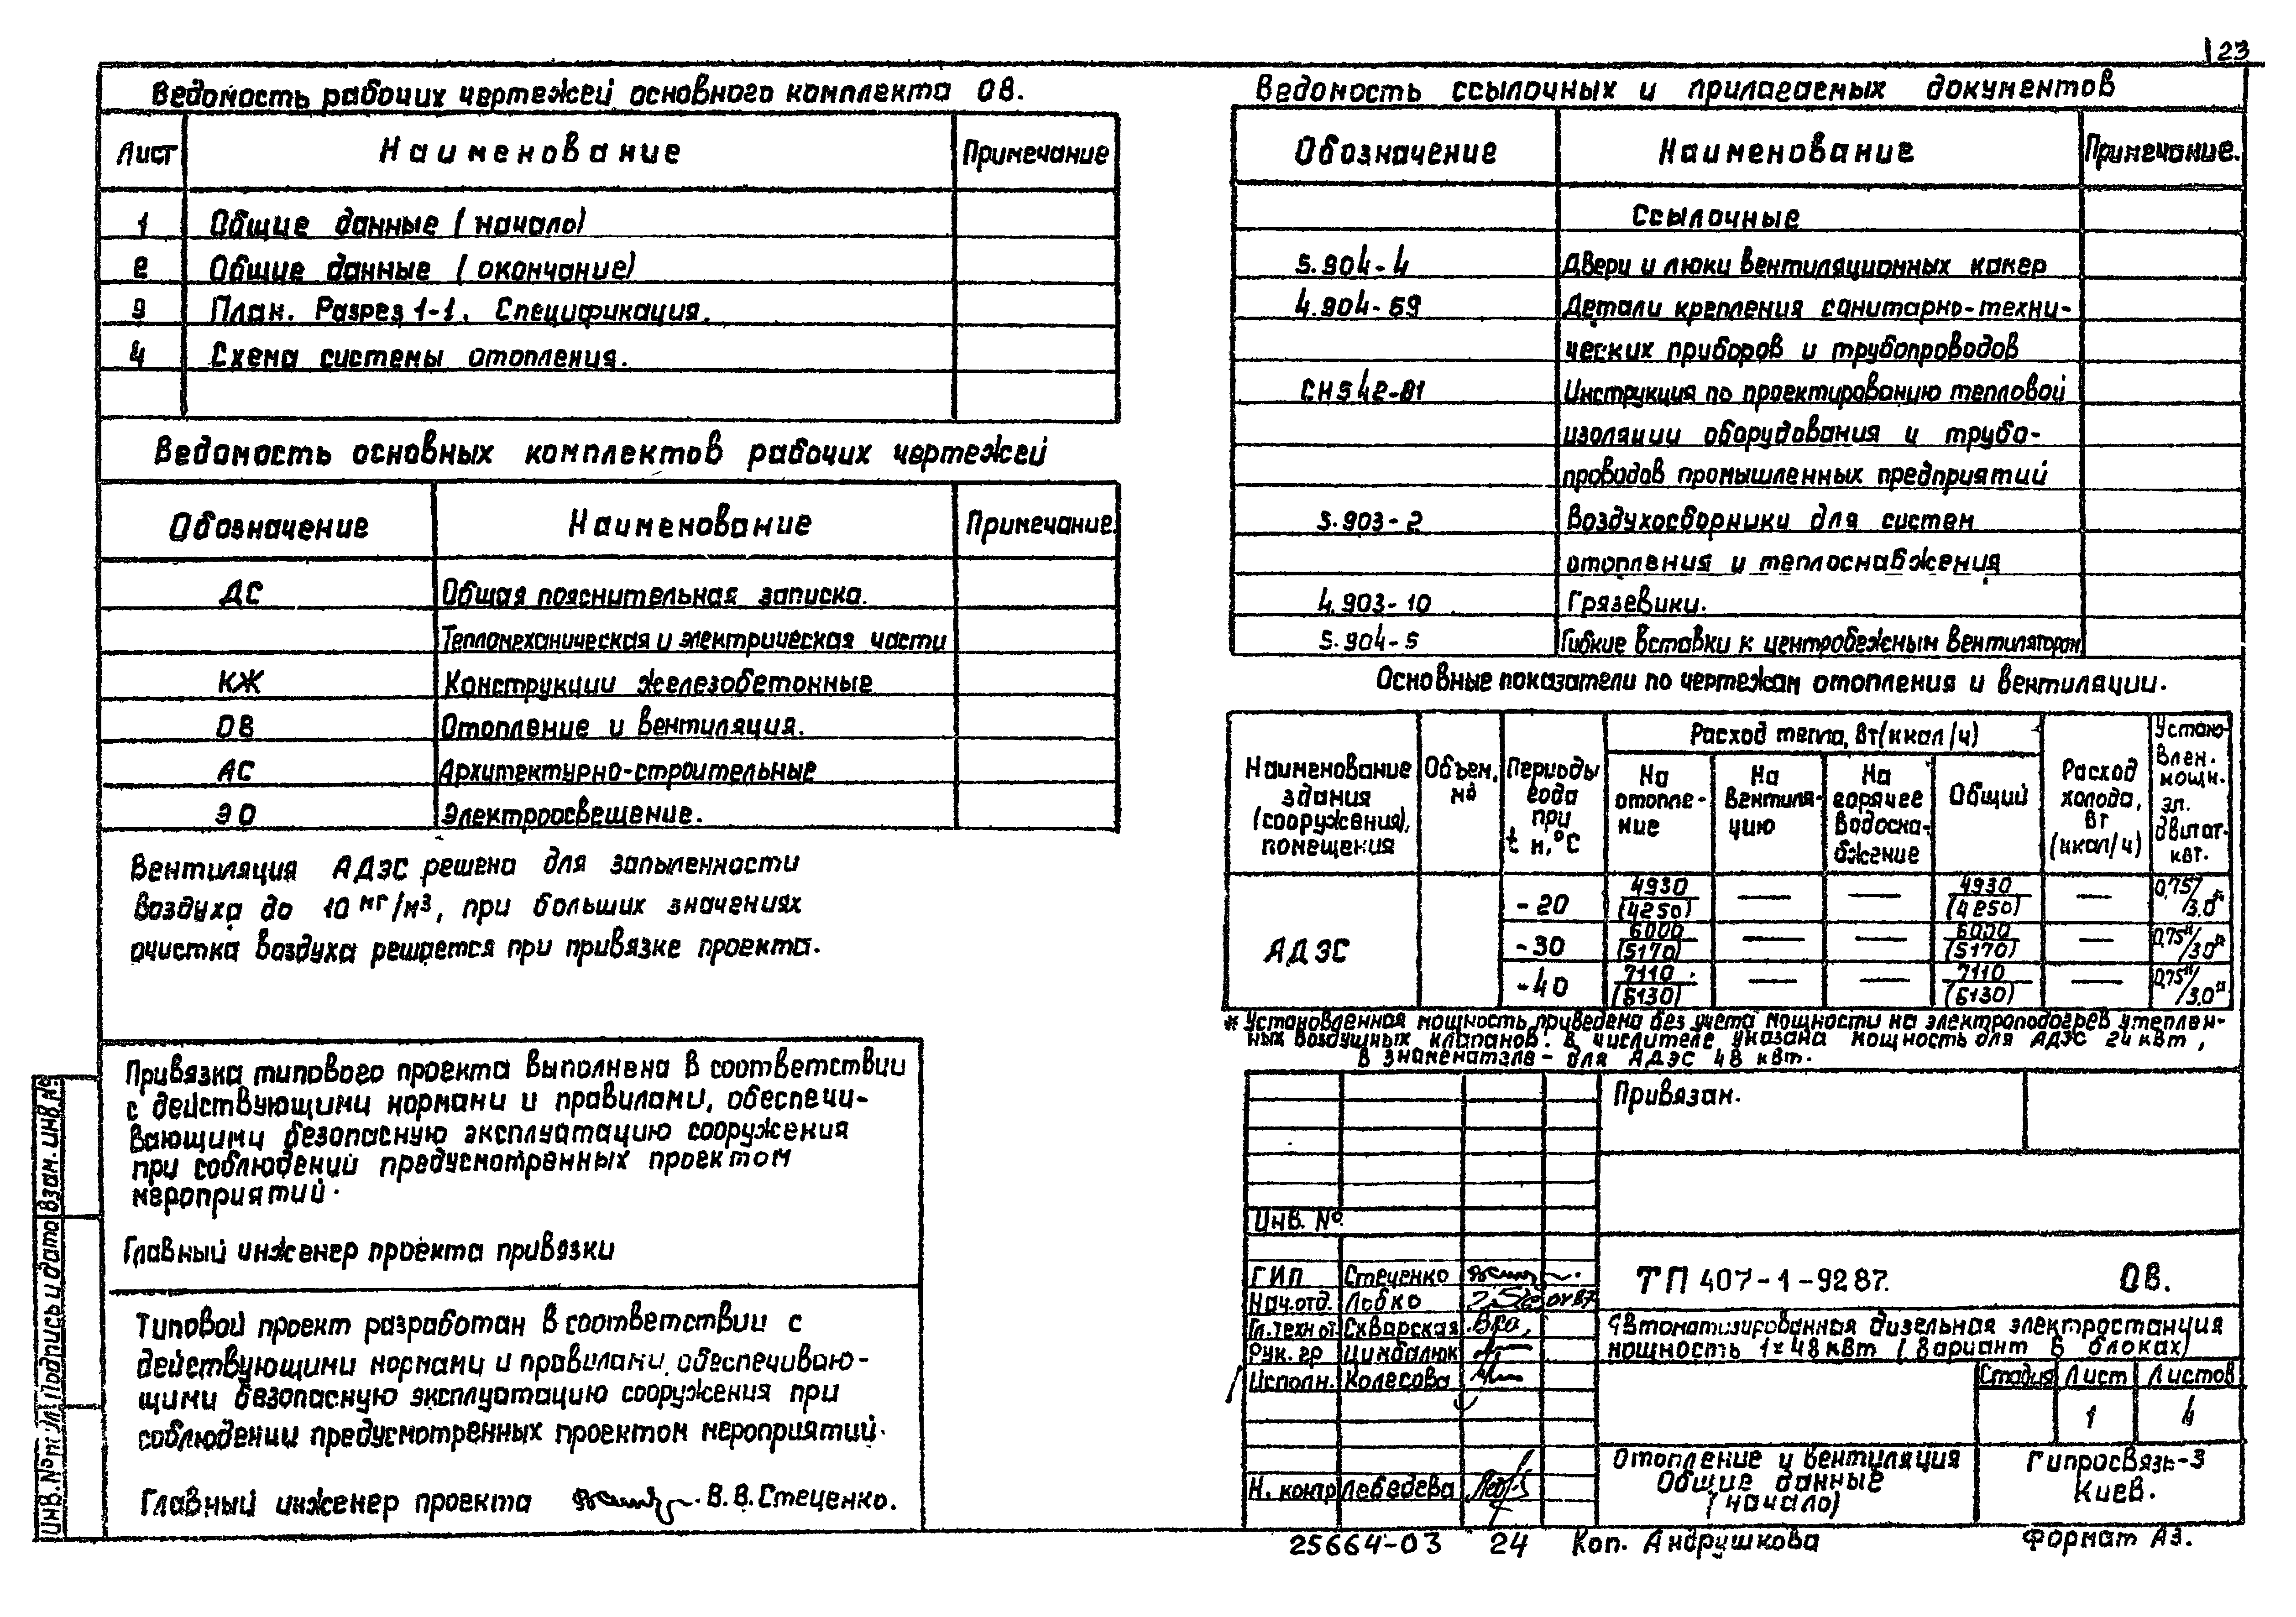 23
Ведомость рабочих чертежей основного комплекта ОВ.
Лист Наименование Примечание
1 Общие данные (начало)
2 Общие данные (окончание)
3 План. Разрез 1-1. Спецификация.
4 Схема системы отопления.
Ведомость основных комплектов рабочих чертежей
Обозначение Наименование Примечание
ДС Общая пояснительная записка.
Тепломеханическая и электрическая части
КЖ Конструкции железобетонные
ОВ Отопление и вентиляция.
АС Архитектурно-строительные
ЭО Электроосвещение.
Вентиляция АДЭС решена для запыленности
воздуха до 10 мг/м3, при больших значениях
очистка воздуха решается при привязке проекта.
Привязка типового проекта выполнена в соответствии
с действующими нормами и правилами, обеспечи-
вающими безопасную эксплуатацию сооружения
при соблюдений предусмотренных проектом
мероприятий.
Главный инженер проекта привязки
Типовой проект разработан в соответствии с
действующими нормами и правилами, обеспечиваю-
щими безопасную эксплуатацию сооружения при
соблюдении предусмотренных проектом мероприятий.
Главный инженер проекта В.В.Стеценко.
Взам. инв.№
Подпись и дата
Инв.№ подл
Ведомость ссылочных и прилагаемых документов
Обозначение Наименование Примечание.
Ссылочные
5.904-4 Двери и люки вентиляционных камер
4.904-69 Детали крепления санитарно-техни-
ческих приборов и трубопроводов
СН542-81 Инструкция по проектированию тепловой
изоляции оборудования и трубо-
проводов промышленных предприятий
5.903-2 Воздухосборники для систем
отопления и теплоснабжения
4.903-10 Грязевики.
5.904-5 Гибкие вставки к центробежным вентиляторам
Основные показатели по чертежам отопления и вентиляции.
Наименование здания (сооружения), помещения
Объем, м3
Периоды года при t н,°С
Расход тепла, Вт(ккал/ч)
На отопле-ние
На вентиля-цию
На горячее водосна-бжение
Общий
Расход холода, Вт (ккал/ч)
Установлен. мощн. эл. двигат. квт.
АДЭС
-20 4930/(4250) — — 4930/(4250) — 0,75*/3.0*
-30 6000/(5170) — — 6000/(5170) — 0,75*/3.0*
-40 7110/(6130) — — 7110/(6130) — 0,75*/3.0*
* Установленная мощность приведена без учета мощности на электроподогрев утеплен-
ных воздушных клапанов. В числителе указана мощность для АДЭС 24 квт,
в знаменателе - для АДЭС 48 квт.
Привязан.
Инв. №
ГИП Стеценко
Нач.отд. Лобко
Гл.техн от Скварская
Рук. гр Цимбалюк
Исполн. Колесова
Н. контр Лебедева
ТП 407-1-92 87. ОВ.
Автоматизированная дизельная электростанция
мощность 1х48кВт (вариант в блоках)
Стадия Лист Листов
1 4
Отопление и вентиляция
Общие данные
(начало)
Гипросвязь-3
Киев.
25664-03 24 Коп. Андрушкова Формат А3.